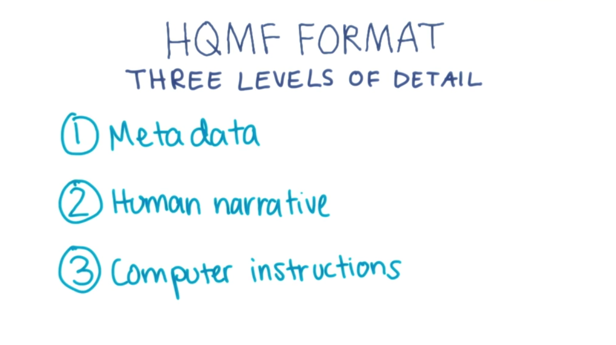 HQMF FORMAT
THREE LEVELS OF DETAIL
1 Metadata
2 Human narrative
3 Computer instructions